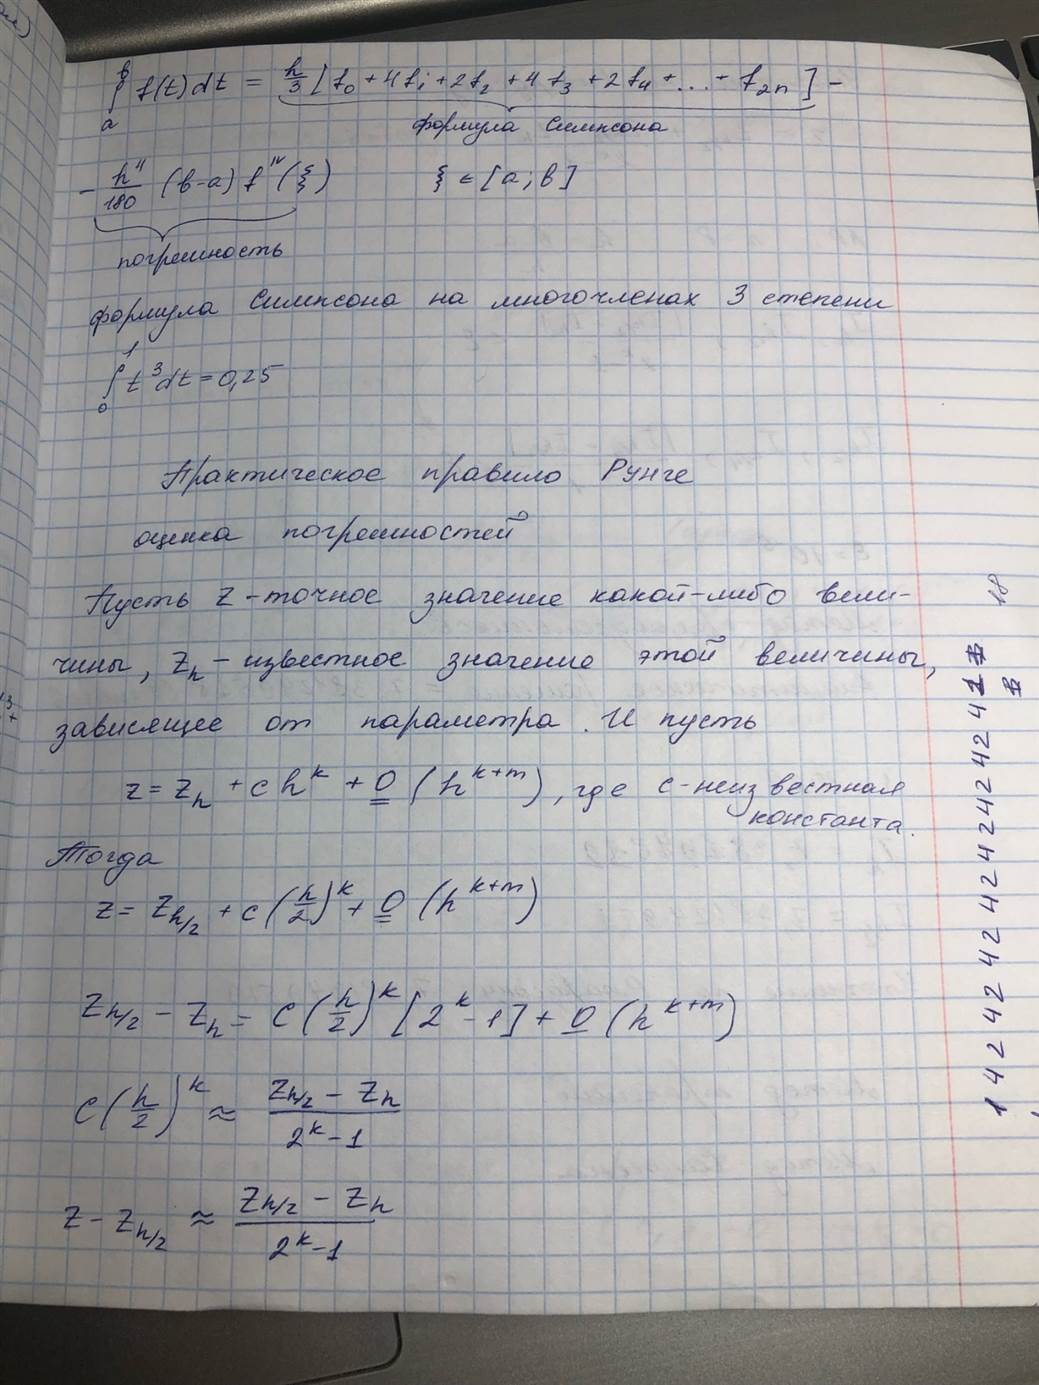 ∫ₐᵇ f(t)dt = h/3 [f₀ + 4f₁ + 2f₂ + 4f₃ + 2f₄ + ... + f₂ₙ] −
формула Симпсона
− h⁴/180 (b-a) f^IV (ξ) ξ ∈ [a; b]
погрешность
формула Симпсона на многочленах 3 степени
∫₀¹ t³dt = 0,25
Практическое правило Рунге
оценка погрешностей
Пусть z - точное значение какой-либо вели-
чины, z_h - известное значение этой величины,
зависящее от параметра. И пусть
z = z_h + c h^k + O (h^{k+m}), где c - неизвестная
константа.
Тогда
z = z_{h/2} + c (h/2)^k + O (h^{k+m})
z_{h/2} − z_h = c (h/2)^k [2^k − 1] + O (h^{k+m})
c (h/2)^k ≈ (z_{h/2} − z_h) / (2^k − 1)
z − z_{h/2} ≈ (z_{h/2} − z_h) / (2^k − 1)
1 4 2 4 2 4 2 4 2 4 2 4 2 4 2 4 2 4 1
18